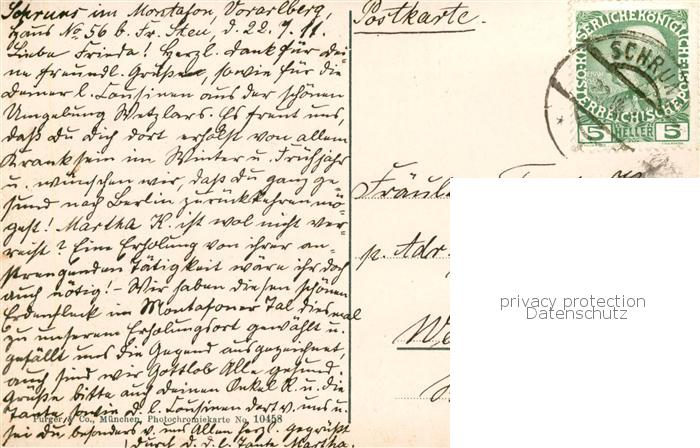 Schruns im Montafon, Vorarlberg,
Haus No 56 b. Fr. Steu, d. 22.7.11.
Liebe Frieda! Herzl. Dank für dei=
ne freundl. Grüße, sowie für die
deiner l. Cousinen aus der schönen
Umgebung Wetzlars. Es freut uns,
daß du dich dort erholst von allem
Kranksein im Winter u. Frühjahr
u. wünschen wir, daß du ganz ge=
sund nach Berlin zurückkehren mö=
gest! Martha K. ist wol nicht ver=
reist? Eine Erholung von ihrer an=
strengenden Tätigkeit wäre ihr doch
auch nötig! – Wir haben diesen schönen
Erdenfleck im Montafoner Tal diesmal
zu unserem Erholungsort gewählt u.
gefällt uns die Gegend ausgezeichnet,
auch sind wir Gottlob Alle gesund.
Grüße bitte auch deinen Onkel R. u. die
Tante sowie d. l. Cousinen dort v. uns u.
sei du besonders v. uns Allen herzl. gegrüßt
durch d. d. l. Tante Martha.
Purger & Co., München, Photochromiekarte No. 10458
Postkarte.
SCHRUN
5 HELLER 5
Fräulein
p. Adr.
We
privacy protection
Datenschutz